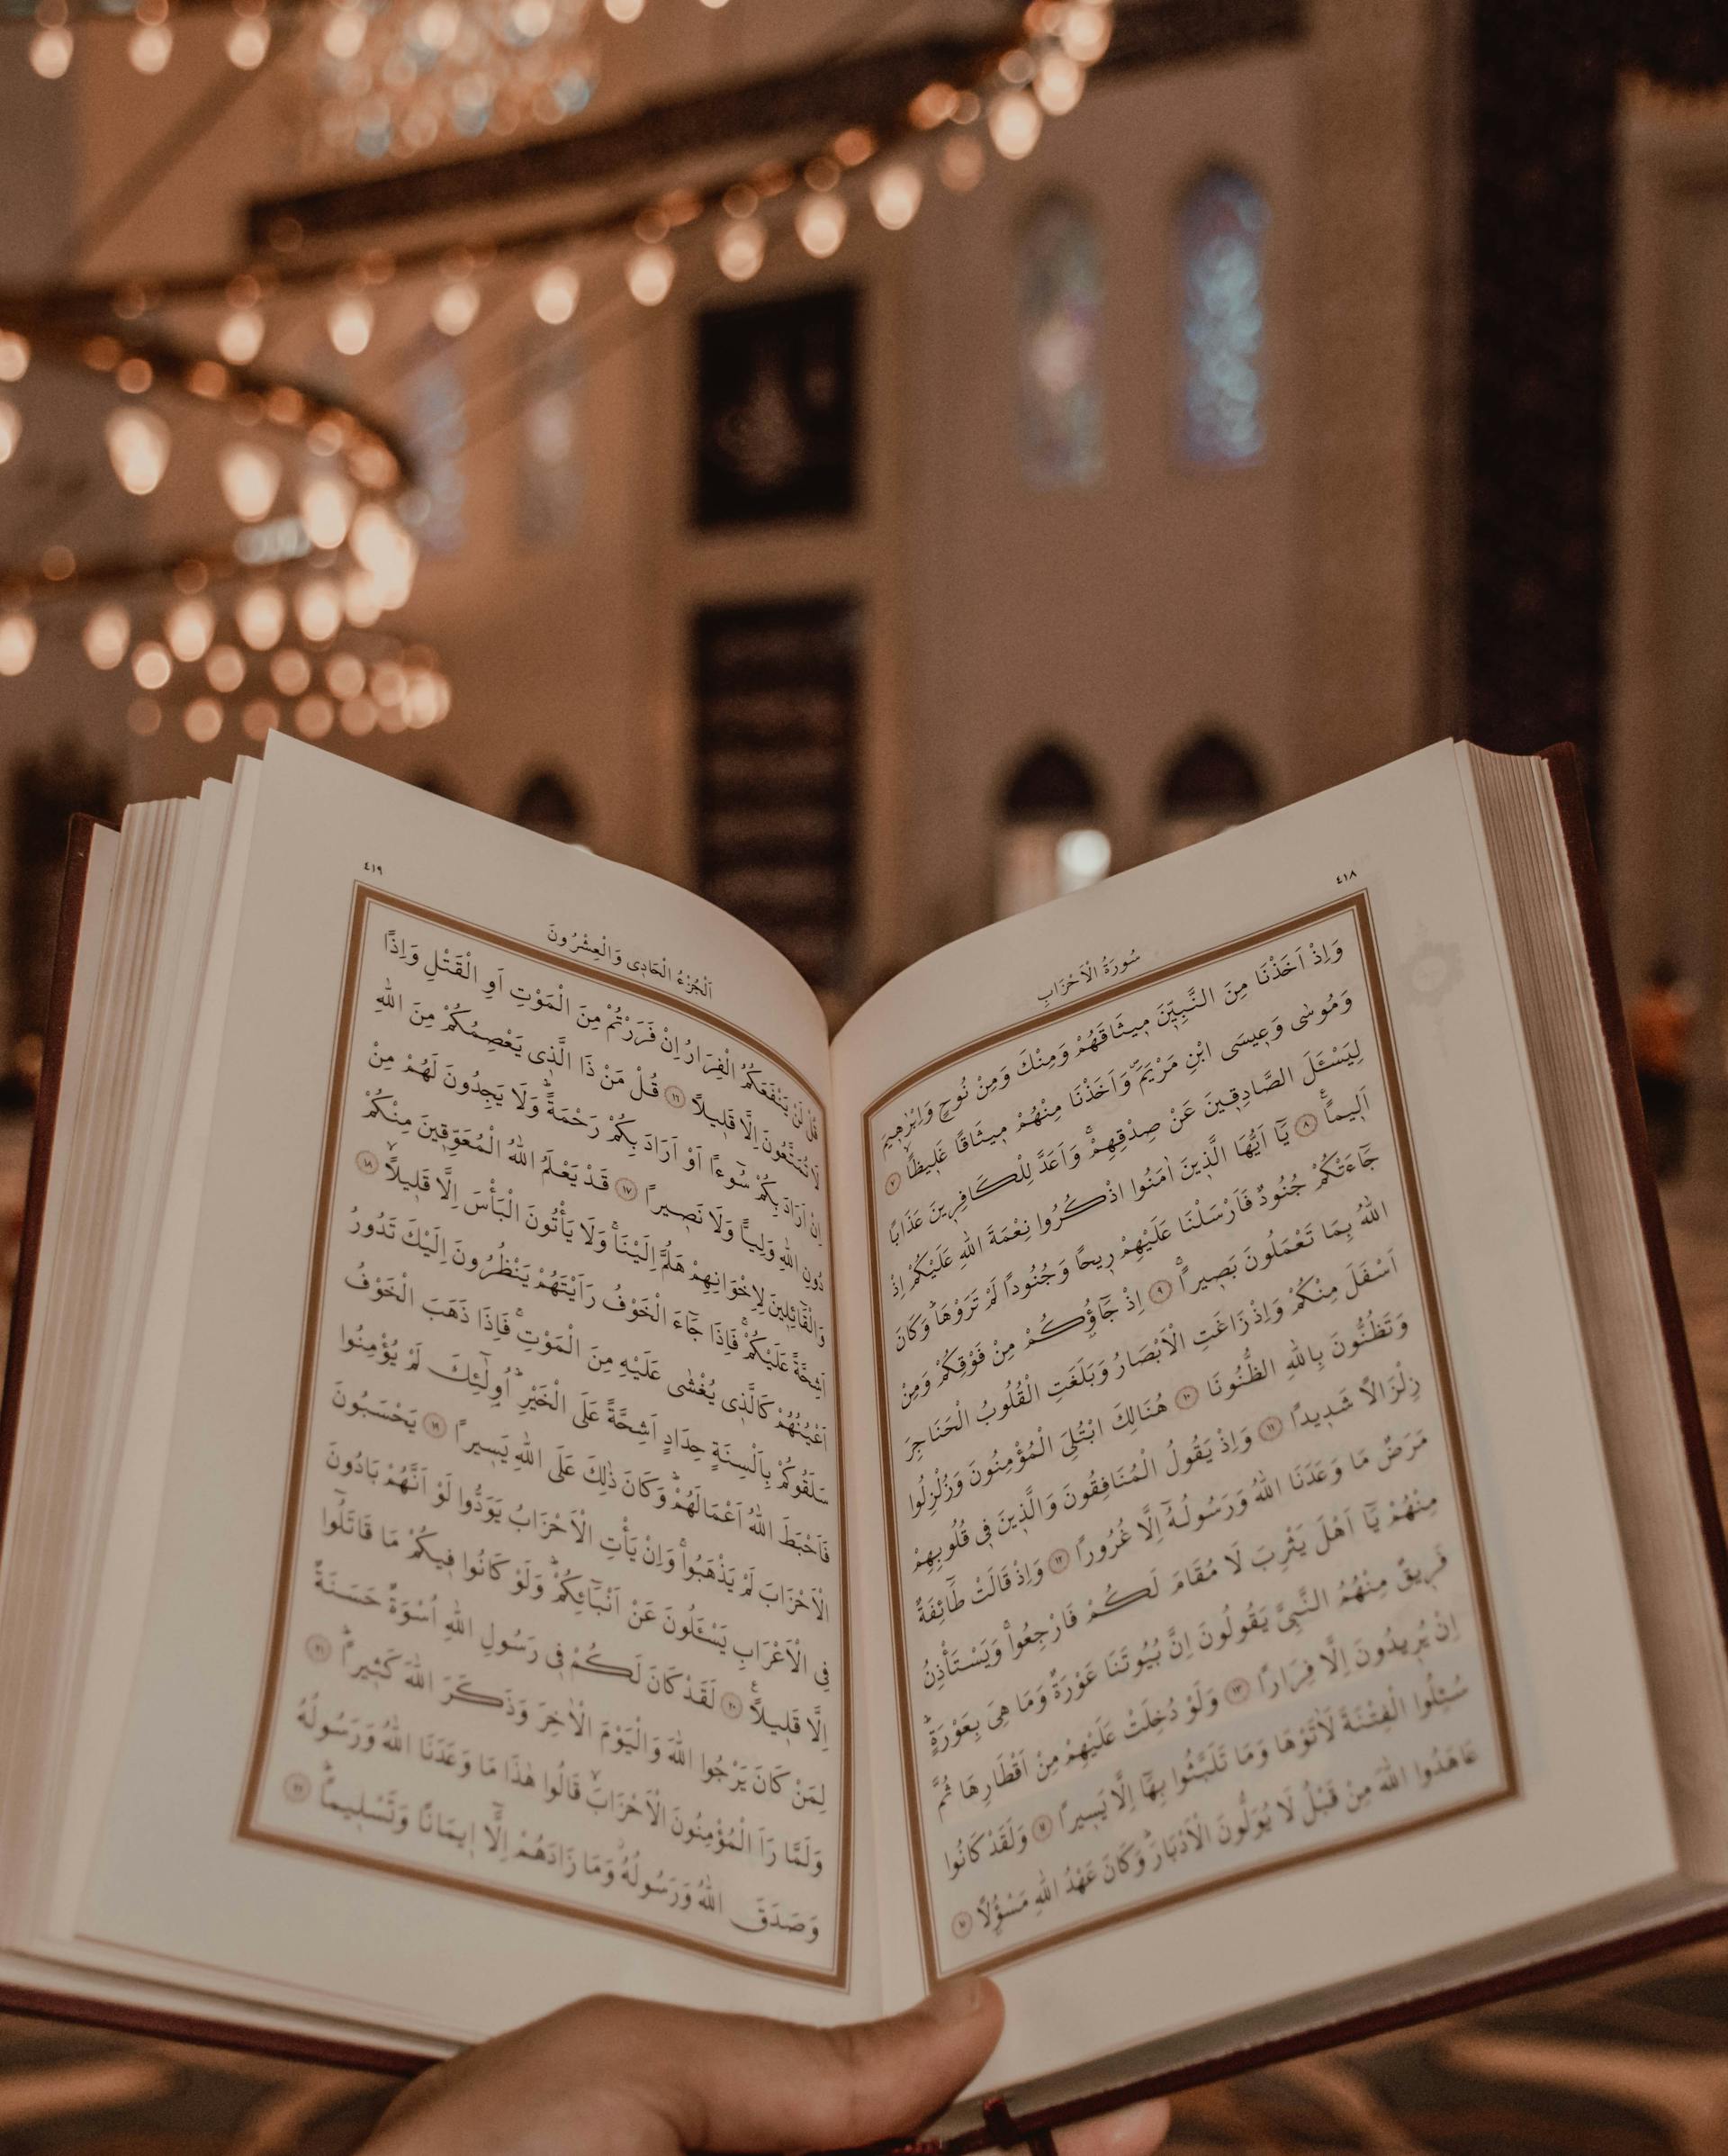 ٤١٨
سُورَةُ الْاَحْزَابِ
وَاِذْ اَخَذْنَا مِنَ النَّبِيّٖنَ مٖيثَاقَهُمْ وَمِنْكَ وَمِنْ نُوحٍ وَاِبْرٰهٖيمَ
وَمُوسٰى وَعٖيسَى ابْنِ مَرْيَمَ وَاَخَذْنَا مِنْهُمْ مٖيثَاقًا غَلٖيظًاۙ ٧
لِيَسْـَٔلَ الصَّادِقٖينَ عَنْ صِدْقِهِمْۚ وَاَعَدَّ لِلْكَافِرٖينَ عَذَابًا
اَلٖيمًاۚ ٨ يَٓا اَيُّهَا الَّذٖينَ اٰمَنُوا اذْكُرُوا نِعْمَةَ اللّٰهِ عَلَيْكُمْ اِذْ
جَٓاءَتْكُمْ جُنُودٌ فَاَرْسَلْنَا عَلَيْهِمْ رٖيحًا وَجُنُودًا لَمْ تَرَوْهَاۜ وَكَانَ
اللّٰهُ بِمَا تَعْمَلُونَ بَصٖيرًاۚ ٩ اِذْ جَٓاؤُ۫كُمْ مِنْ فَوْقِكُمْ وَمِنْ
اَسْفَلَ مِنْكُمْ وَاِذْ زَاغَتِ الْاَبْصَارُ وَبَلَغَتِ الْقُلُوبُ الْحَنَاجِرَ
وَتَظُنُّونَ بِاللّٰهِ الظُّنُونَا ١٠ هُنَالِكَ ابْتُلِيَ الْمُؤْمِنُونَ وَزُلْزِلُوا
زِلْزَالًا شَدٖيدًا ١١ وَاِذْ يَقُولُ الْمُنَافِقُونَ وَالَّذٖينَ فٖى قُلُوبِهِمْ
مَرَضٌ مَا وَعَدَنَا اللّٰهُ وَرَسُولُهُٓ اِلَّا غُرُورًا ١٢ وَاِذْ قَالَتْ طَٓائِفَةٌ
مِنْهُمْ يَٓا اَهْلَ يَثْرِبَ لَا مُقَامَ لَكُمْ فَارْجِعُواۚ وَيَسْتَأْذِنُ
فَرٖيقٌ مِنْهُمُ النَّبِيَّ يَقُولُونَ اِنَّ بُيُوتَنَا عَوْرَةٌ وَمَا هِيَ بِعَوْرَةٍۜ
اِنْ يُرٖيدُونَ اِلَّا فِرَارًا ١٣ وَلَوْ دُخِلَتْ عَلَيْهِمْ مِنْ اَقْطَارِهَا ثُمَّ
سُئِلُوا الْفِتْنَةَ لَاٰتَوْهَا وَمَا تَلَبَّثُوا بِهَٓا اِلَّا يَسٖيرًا ١٤ وَلَقَدْ كَانُوا
عَاهَدُوا اللّٰهَ مِنْ قَبْلُ لَا يُوَلُّونَ الْاَدْبَارَۜ وَكَانَ عَهْدُ اللّٰهِ مَسْؤُ۫لًا ١٥
٤١٩
اَلْجُزْءُ الْحَادٖى وَالْعِشْرُونَ
قُلْ لَنْ يَنْفَعَكُمُ الْفِرَارُ اِنْ فَرَرْتُمْ مِنَ الْمَوْتِ اَوِ الْقَتْلِ وَاِذًا
لَا تُمَتَّعُونَ اِلَّا قَلٖيلًا ١٦ قُلْ مَنْ ذَا الَّذٖى يَعْصِمُكُمْ مِنَ اللّٰهِ
اِنْ اَرَادَ بِكُمْ سُٓوءًا اَوْ اَرَادَ بِكُمْ رَحْمَةًۜ وَلَا يَجِدُونَ لَهُمْ مِنْ
دُونِ اللّٰهِ وَلِيًّا وَلَا نَصٖيرًا ١٧ قَدْ يَعْلَمُ اللّٰهُ الْمُعَوِّقٖينَ مِنْكُمْ
وَالْقَٓائِلٖينَ لِاِخْوَانِهِمْ هَلُمَّ اِلَيْنَاۚ وَلَا يَأْتُونَ الْبَأْسَ اِلَّا قَلٖيلًاۙ ١٨
اَشِحَّةً عَلَيْكُمْۚ فَاِذَا جَٓاءَ الْخَوْفُ رَاَيْتَهُمْ يَنْظُرُونَ اِلَيْكَ تَدُورُ
اَعْيُنُهُمْ كَالَّذٖى يُغْشٰى عَلَيْهِ مِنَ الْمَوْتِۚ فَاِذَا ذَهَبَ الْخَوْفُ
سَلَقُوكُمْ بِاَلْسِنَةٍ حِدَادٍ اَشِحَّةً عَلَى الْخَيْرِۜ اُو۬لٰٓئِكَ لَمْ يُؤْمِنُوا
فَاَحْبَطَ اللّٰهُ اَعْمَالَهُمْۜ وَكَانَ ذٰلِكَ عَلَى اللّٰهِ يَسٖيرًا ١٩ يَحْسَبُونَ
الْاَحْزَابَ لَمْ يَذْهَبُواۚ وَاِنْ يَأْتِ الْاَحْزَابُ يَوَدُّوا لَوْ اَنَّهُمْ بَادُونَ
فِى الْاَعْرَابِ يَسْـَٔلُونَ عَنْ اَنْبَٓائِكُمْۜ وَلَوْ كَانُوا فٖيكُمْ مَا قَاتَلُٓوا
اِلَّا قَلٖيلًاۚ ٢٠ لَقَدْ كَانَ لَكُمْ فٖى رَسُولِ اللّٰهِ اُسْوَةٌ حَسَنَةٌ
لِمَنْ كَانَ يَرْجُوا اللّٰهَ وَالْيَوْمَ الْاٰخِرَ وَذَكَرَ اللّٰهَ كَثٖيرًاۜ ٢١
وَلَمَّا رَاَ الْمُؤْمِنُونَ الْاَحْزَابَۙ قَالُوا هٰذَا مَا وَعَدَنَا اللّٰهُ وَرَسُولُهُ
وَصَدَقَ اللّٰهُ وَرَسُولُهُۘ وَمَا زَادَهُمْ اِلَّٓا اٖيمَانًا وَتَسْلٖيمًاۜ ٢٢